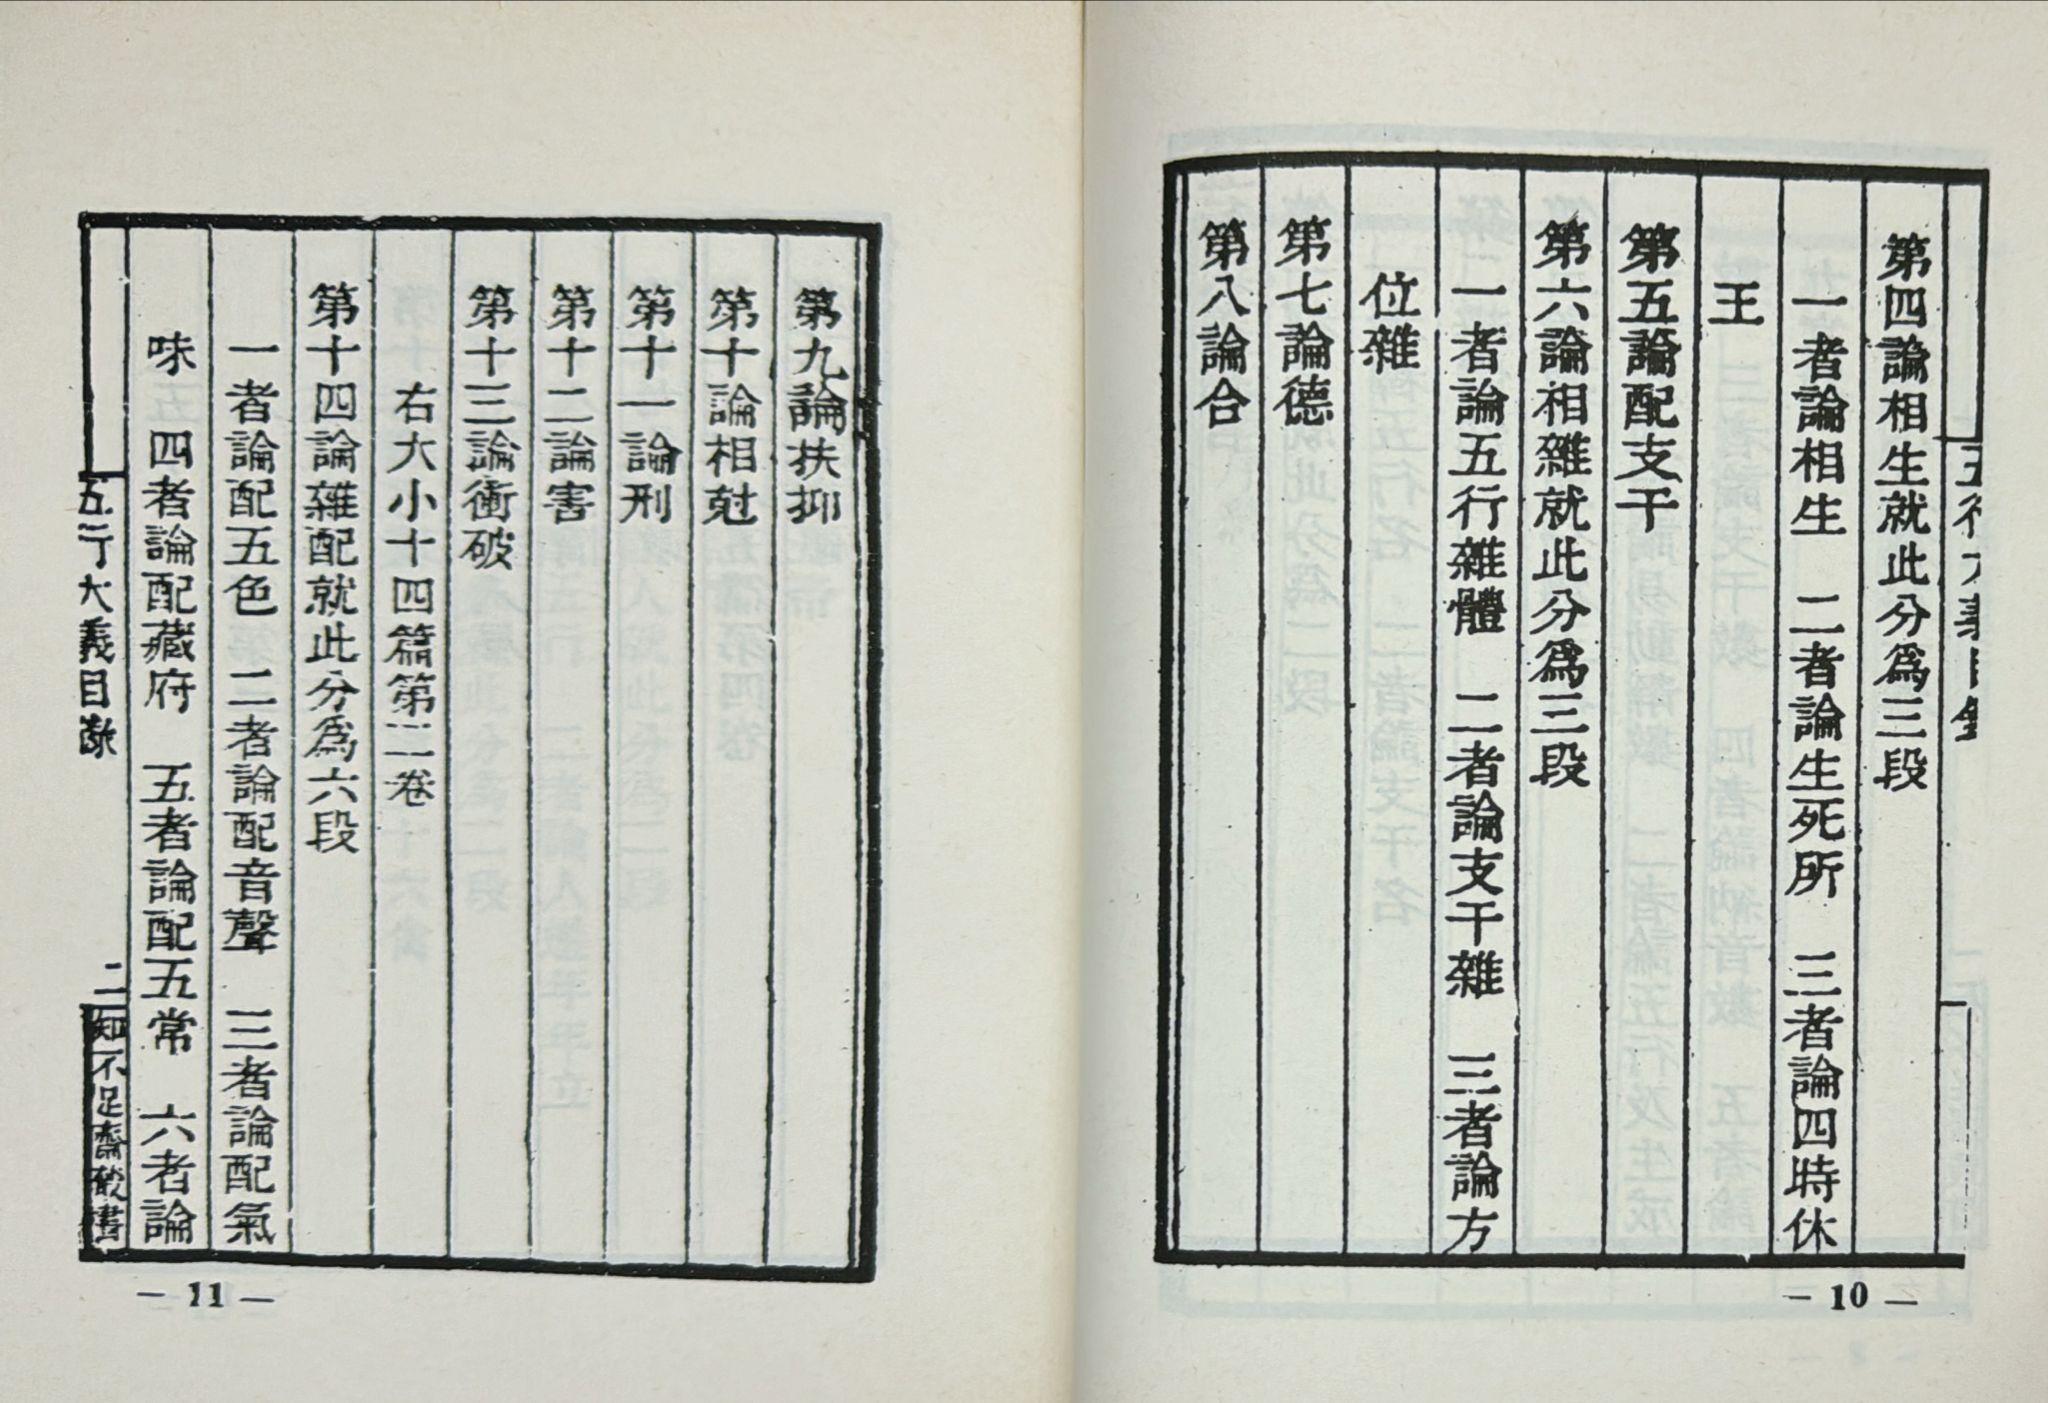 五行大義目錄
第四論相生就此分爲三段
一者論相生　二者論生死所　三者論四時休
王
第五論配支干
第六論相雜就此分爲三段
一者論五行雜體　二者論支干雜　三者論方
位雜
第七論德
第八論合
— 10 —
第九論扶抑
第十論相尅
第十一論刑
第十二論害
第十三論衝破
右大小十四篇第二卷
第十四論雜配就此分爲六段
一者論配五色　二者論配音聲　三者論配氣
味　四者論配藏府　五者論配五常　六者論
五行大義目錄　二　知不足齋叢書
— 11 —